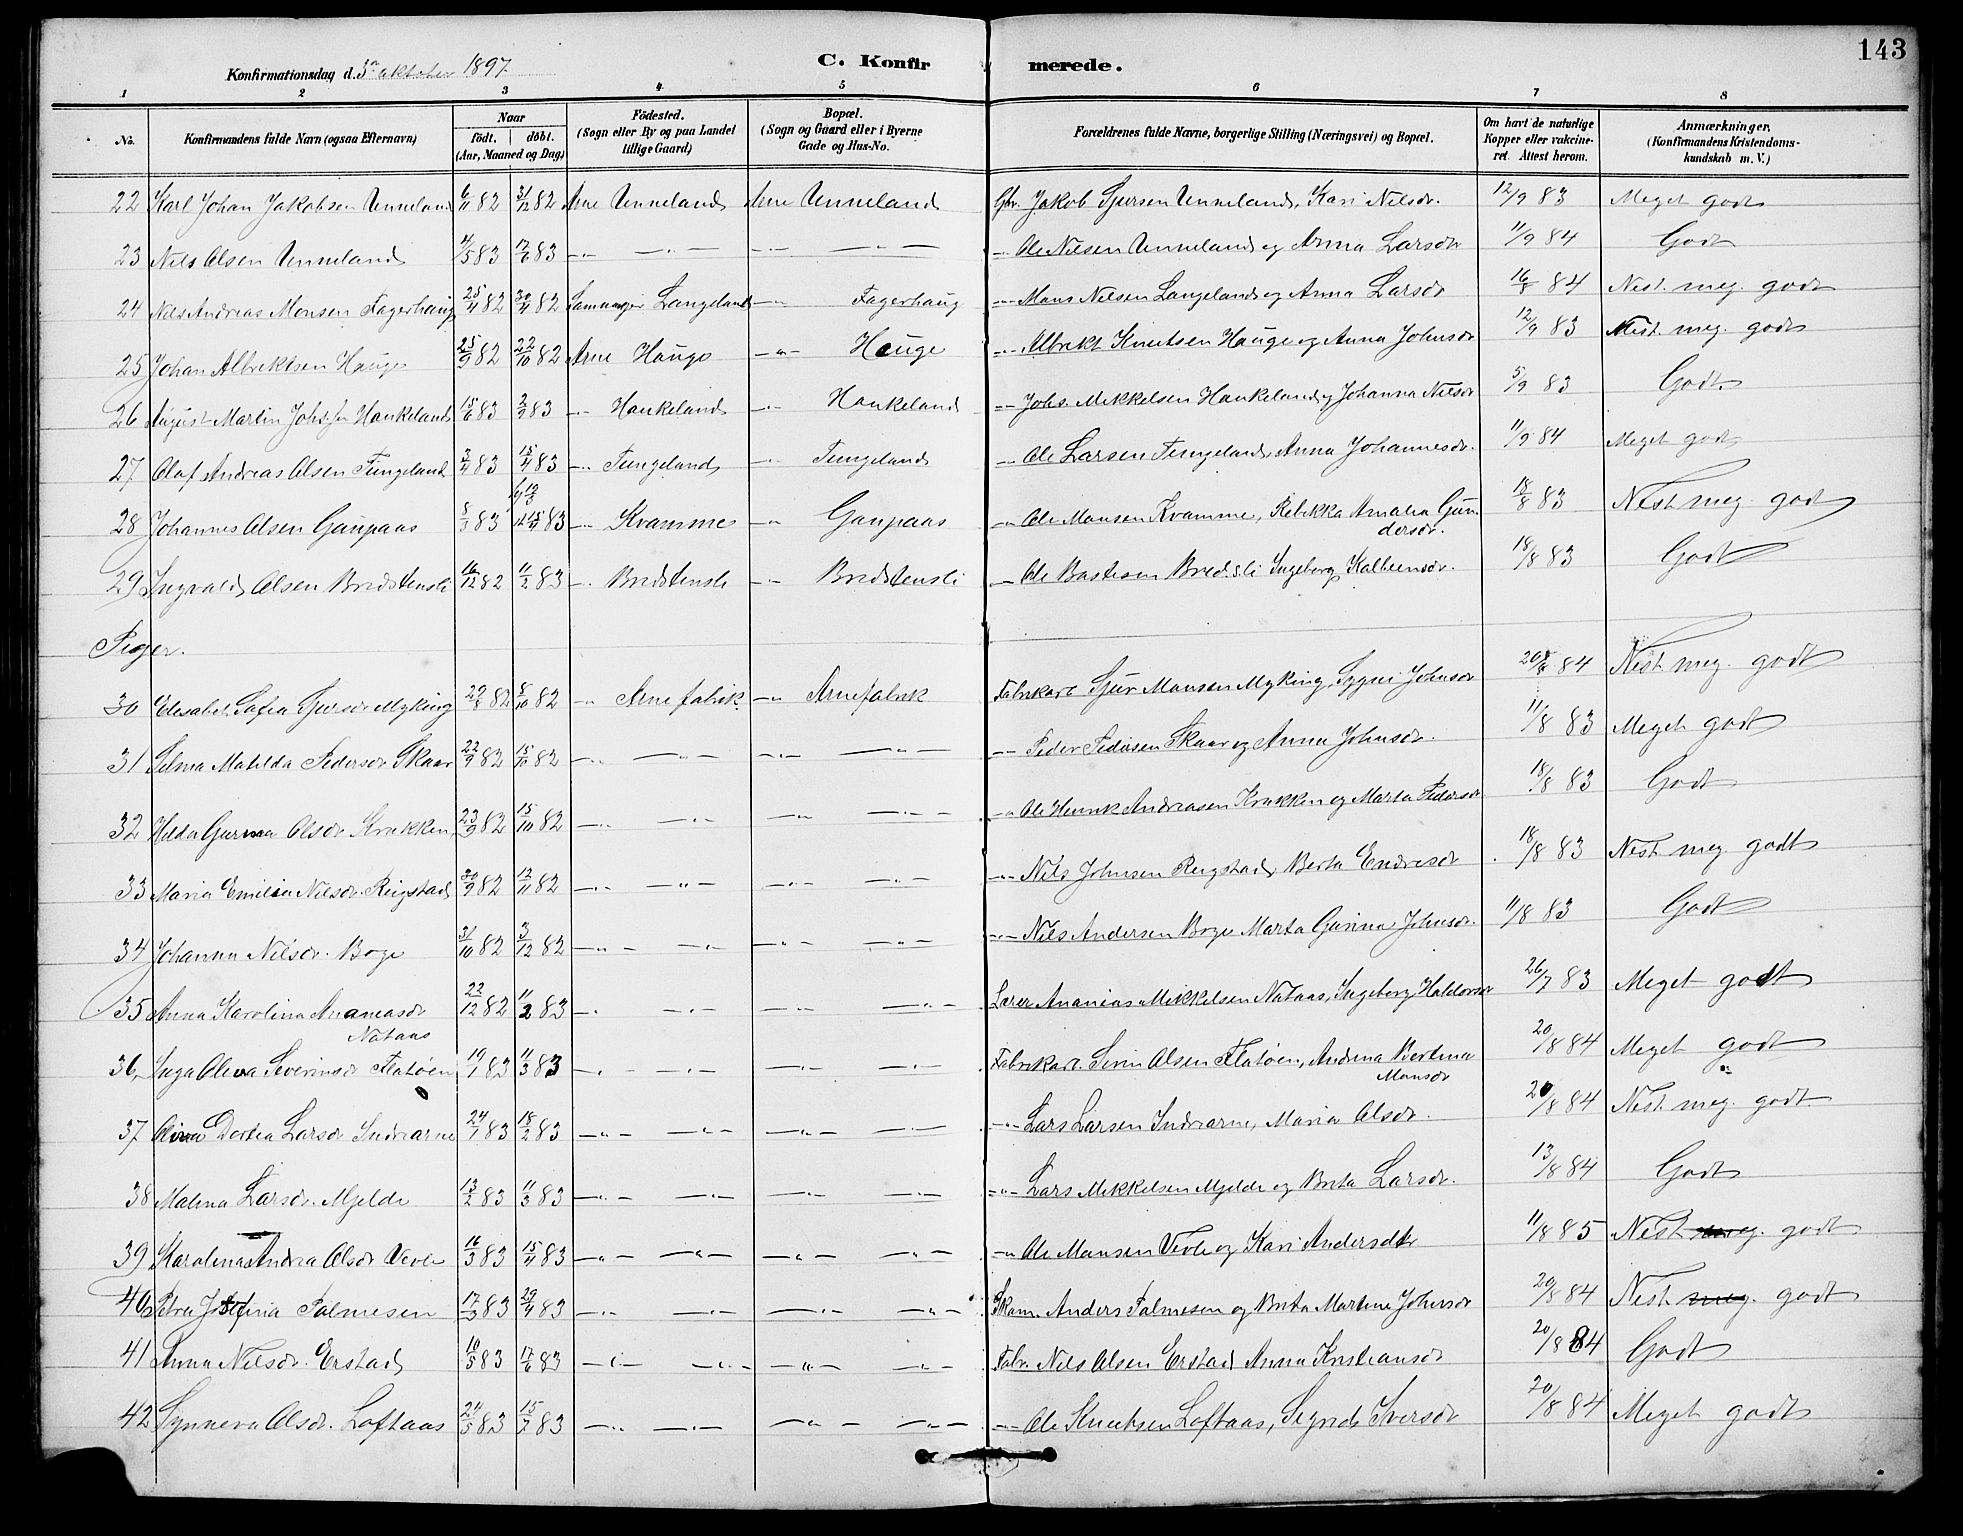 143
Konfirmationsdag d. 3die oktober 1897.
C. Konfirmerede.
1 2 3 4 5 6 7 8
No. Konfirmandens fulde Navn (ogsaa Efternavn) Naar født. døbt. (Aar, Maaned og Dag) Fødested. (Sogn eller By og paa Landet tillige Gaard) Bopæl. (Sogn og Gaard eller i Byerne Gade og Hus-No. Forældrenes fulde Navne, borgerlige Stilling (Næringsvei) og Bopæl. Om havt de naturlige Kopper eller vakcineret. Attest herom. Anmærkninger, (Konfirmandens Kristendomskundskab m. V.)
22 Karl Johan Jakobsen Unneland 6/11 82 31/12 82 Arne Unneland Arne Unneland Gbr. Jakob Sjursen Unneland, Kari Nilsdr. 12/9 83 Meget godt
23 Nils Olsen Unneland 4/5 83 17/6 83 –"– –"– –"– –"– –"– Ole Nilsen Unneland og Anna Larsdr 11/9 84 Godt
24 Nils Andreas Monsen Fagerhaug 25/4 82 30/4 82 Samnanger Langeland –"– Fagerhaug –"– Mons Nilsen Langeland og Anna Larsdr 16/8 84 Nest. meg. godt
25 Johan Albriktsen Hauge 25/9 82 22/10 82 Arne Hauge –"– Hauge –"– Albrikt Knutsen Hauge og Anna Johnsdr 12/9 83 Nest. meg. godt
26 August Martin Johs.sen Haukeland 15/6 83 2/9 83 –"– Haukeland –"– Haukeland –"– Johs. Mikkelsen Haukeland og Johanna Nilsdr 5/9 83 Godt.
27 Olaf Andreas Olsen Tungeland 3/4 83 15/4 83 –"– Tungeland –"– Tungeland –"– Ole Larsen Tungeland, Anna Johannesdr. 11/9 84 Meget godt
28 Johannes Olsen Gaupaas 5/3 83 15/4 83 –"– Kvamme –"– Gaupaas –"– Ole Monsen Kvamme, Rebikka Amalia Gundersdr. 18/8 83 Nest meg. godt
29 Ingvald Olsen Bredstensli 16/12 82 11/2 83 –"– Bredstensli –"– Bredstensli –"– Ole Bastesen Bred.s.li Ingeborg 18/8 83 Godt
Piger.
30 Elisabet Sofia Sjursdr Myking 82 8/10 82 –"– Arne fabrik –"– Arne fabrik Fabrikarb. Sjur Monsen Myking, Sygni Johnsdr 84 Nest. meg. godt
31 Selma Matilda Pedersdr Skaar 22/9 82 15/10 82 –"– –"– –"– –"– –"– Peder Pedersen Skaar og Anna Johnsdr. 11/8 83 Meget godt
32 Hilda Gurina Olsdr Krukken, 23/9 82 15/10 82 –"– –"– –"– –"– –"– Ole Henrik Andreasen Krukken og Marta Pedersdr 18/8 83 Godt
33 Maria Emilia Nilsdr. Reigstad 30/9 82 12/11 82 –"– –"– –"– –"– –"– Nils Johnsen Reigstad, Berta Endresdr 18/8 83 Nest. meg. godt
34 Johanna Nilsdr. Boge 31/10 82 3/12 82 –"– –"– –"– –"– –"– Nils Andersen Boge Marta Gurina Johnsdr. 11/8 83 Godt
35 Anna Karolina Ananiasdr Nataas 22/12 82 11/2 83 –"– –"– –"– –"– Lærer Ananias Mikkelsen Nataas, Ingeborg Haldorsdr 26/7 83 Meget godt
36 Inga Oliva Severinsdr Flatøen 19/1 83 11/3 83 –"– –"– –"– –"– Fabrikarb. Sivrin Olsen Flatøen, Andrina Bertina Monsdr 20/8 84 Meget godt
37 Dortea Larsdr Indrearne 24/1 83 18/2 83 –"– –"– –"– –"– –"– Lars Larsen Indrearne, Maria Olsdr. 20/8 84 Nest. meg. godt
38 Malena Larsdr. Mjelde 13/2 83 11/3 83 –"– –"– –"– –"– –"– Lars Mikkelsen Mjelde og Brita Larsdr. 13/8 84 Godt
39 Karolina Andrea Olsdr Vevle 16/3 83 15/4 83 –"– –"– –"– –"– –"– Ole Monsen Vevle og Kari Andersdtr 11/8 85 Nest. meg. godt
40 Petra Josefina Palmesen 17/3 83 29/4 83 –"– –"– –"– –"– Skom. Anders Palmesen og Brita Martine Johnsdr 20/8 84 Nest. meg. godt
41 Anna Nilsdr. Erstad 10/5 83 17/6 83 –"– –"– –"– –"– Fabr. Nils Olsen Erstad Anna Kristiansdr 20/8 84 Godt
42 Synneva Olsdr. Loftaas 24/5 83 15/7 83 –"– –"– –"– –"– –"– Ole Knutsen Loftaas, Sigrid Iversdr 20/8 84 Meget godt